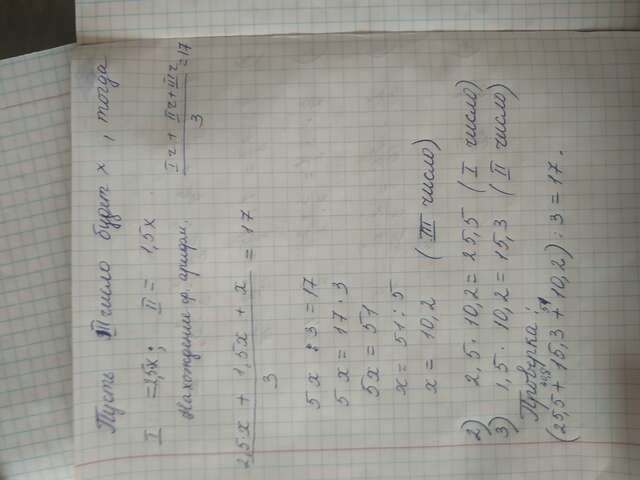 Пусть III число будет x, тогда
I = 2,5x; II = 1,5x
Нахождение ср. арифм. (I ч + II ч + III ч)/3 = 17
(2,5x + 1,5x + x)/3 = 17
5x : 3 = 17
5x = 17 · 3
5x = 51
x = 51 : 5
x = 10,2 (III число)
2) 2,5 · 10,2 = 25,5 (I число)
3) 1,5 · 10,2 = 15,3 (II число)
Проверка:
51
(25,5 + 15,3 + 10,2) : 3 = 17.